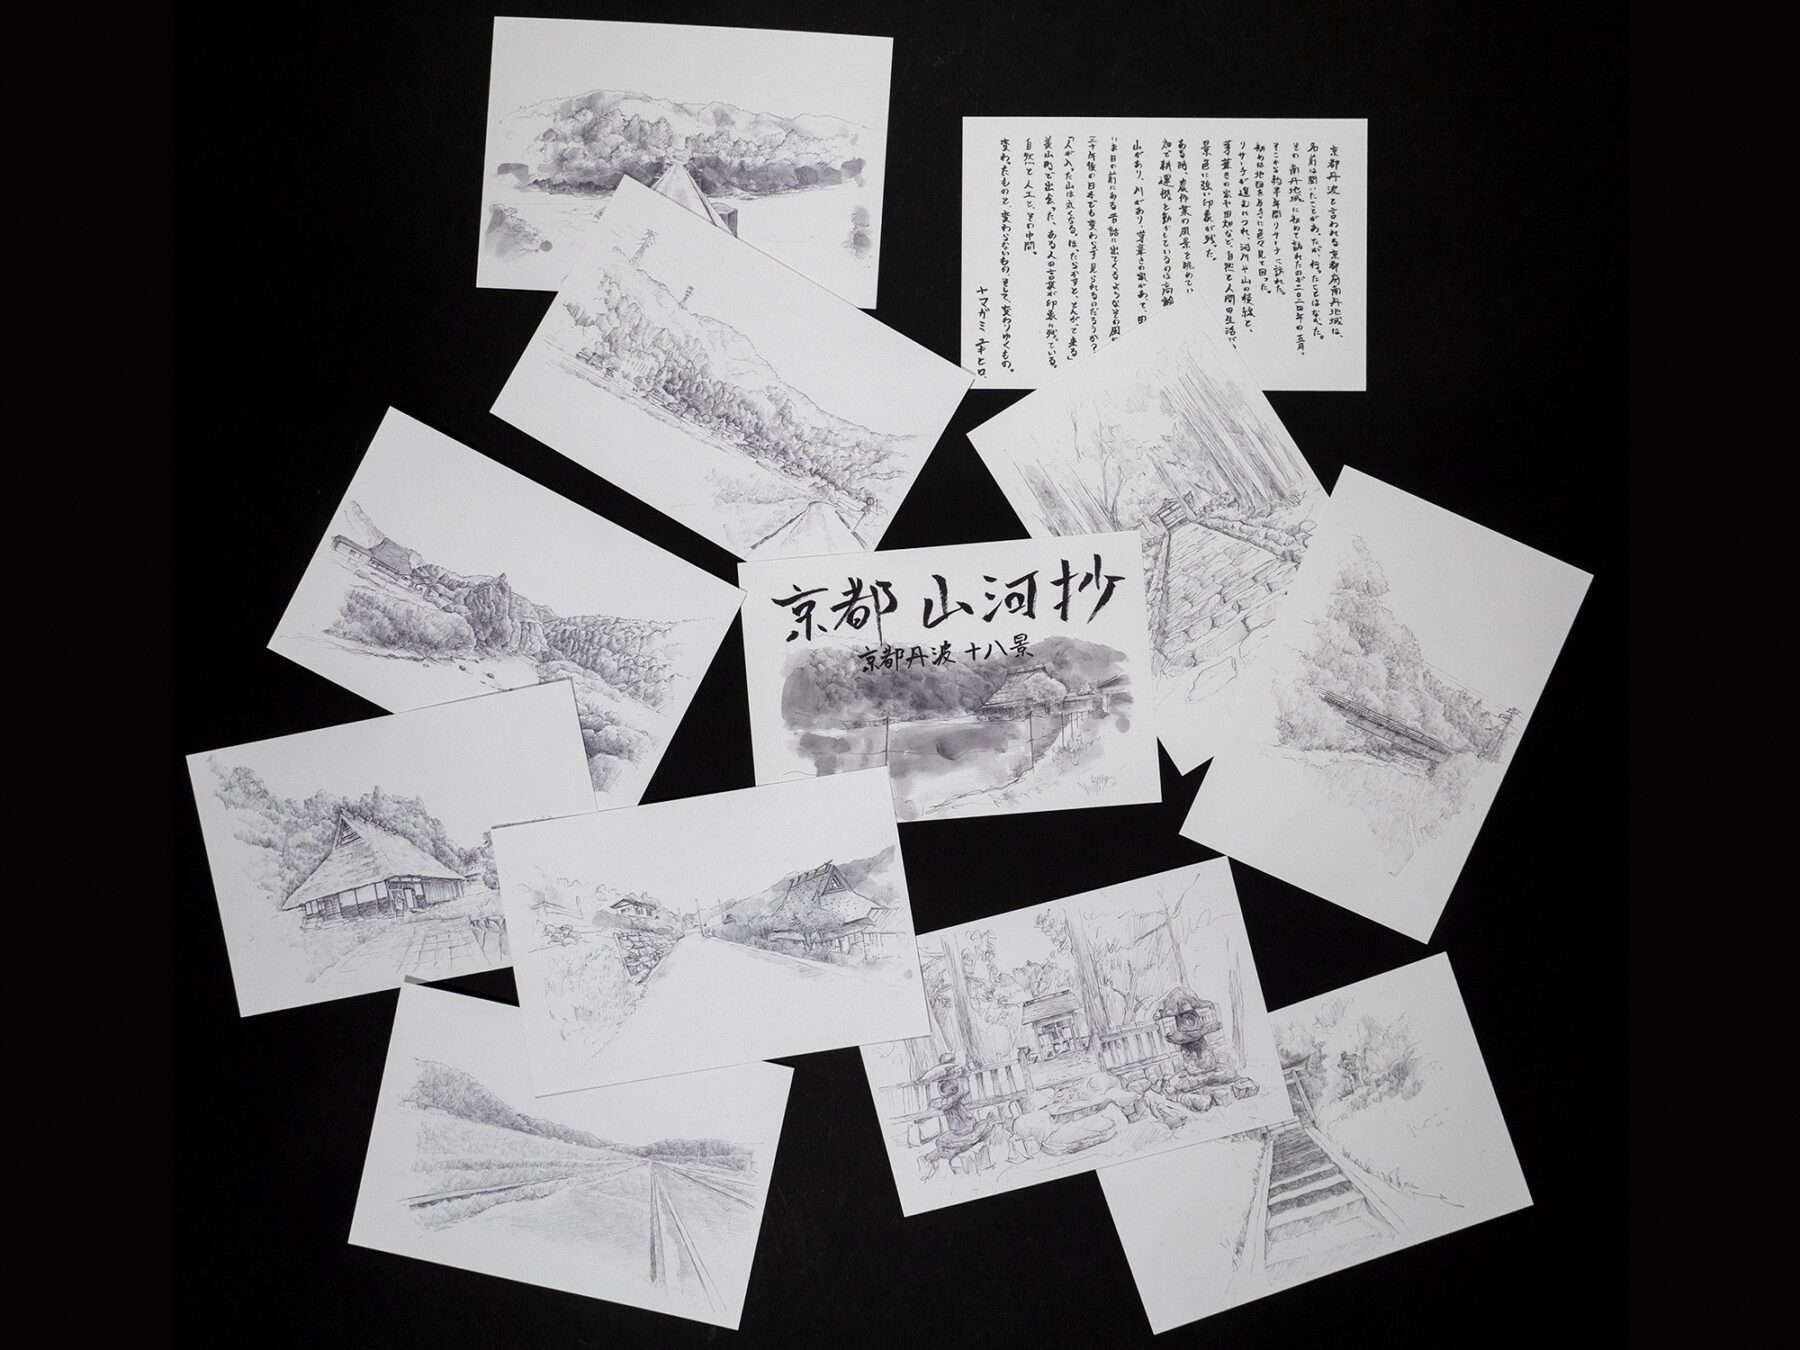 京都 山河抄
京都丹波 十八景
京都丹波と言われる京都府南丹地域は、
名前は聞いたことがあったが、行ったことはなかった。
その南丹地域に初めて訪れたのが二〇二四年の五月。
そこから約半年間リサーチに訪れた。
初めは地図を片手に色々見て回った。
リサーチが進むにつれ、河川や山の稜線と、
茅葺きの家や田畑など、自然と人間の生活が、
景色に強い印象が残った。
ある時、農作業の風景を眺めてい
畑で耕運機を動かしているのは高齢
山があり、川があり、茅葺きの家があって、田
いま目の前にある昔話に出てくるようなその風
三十年後の日本でも変わらず見られるのだろうか？
「人が入った山は丸くなる。ほったらかすと、とんがって来る」
美山町で出会った、ある人の言葉が印象に残っている。
自然と人工と、その中間。
変わったものと、変わらないもの、そして、変わりゆくもの。
ヤマガミ ユキヒロ